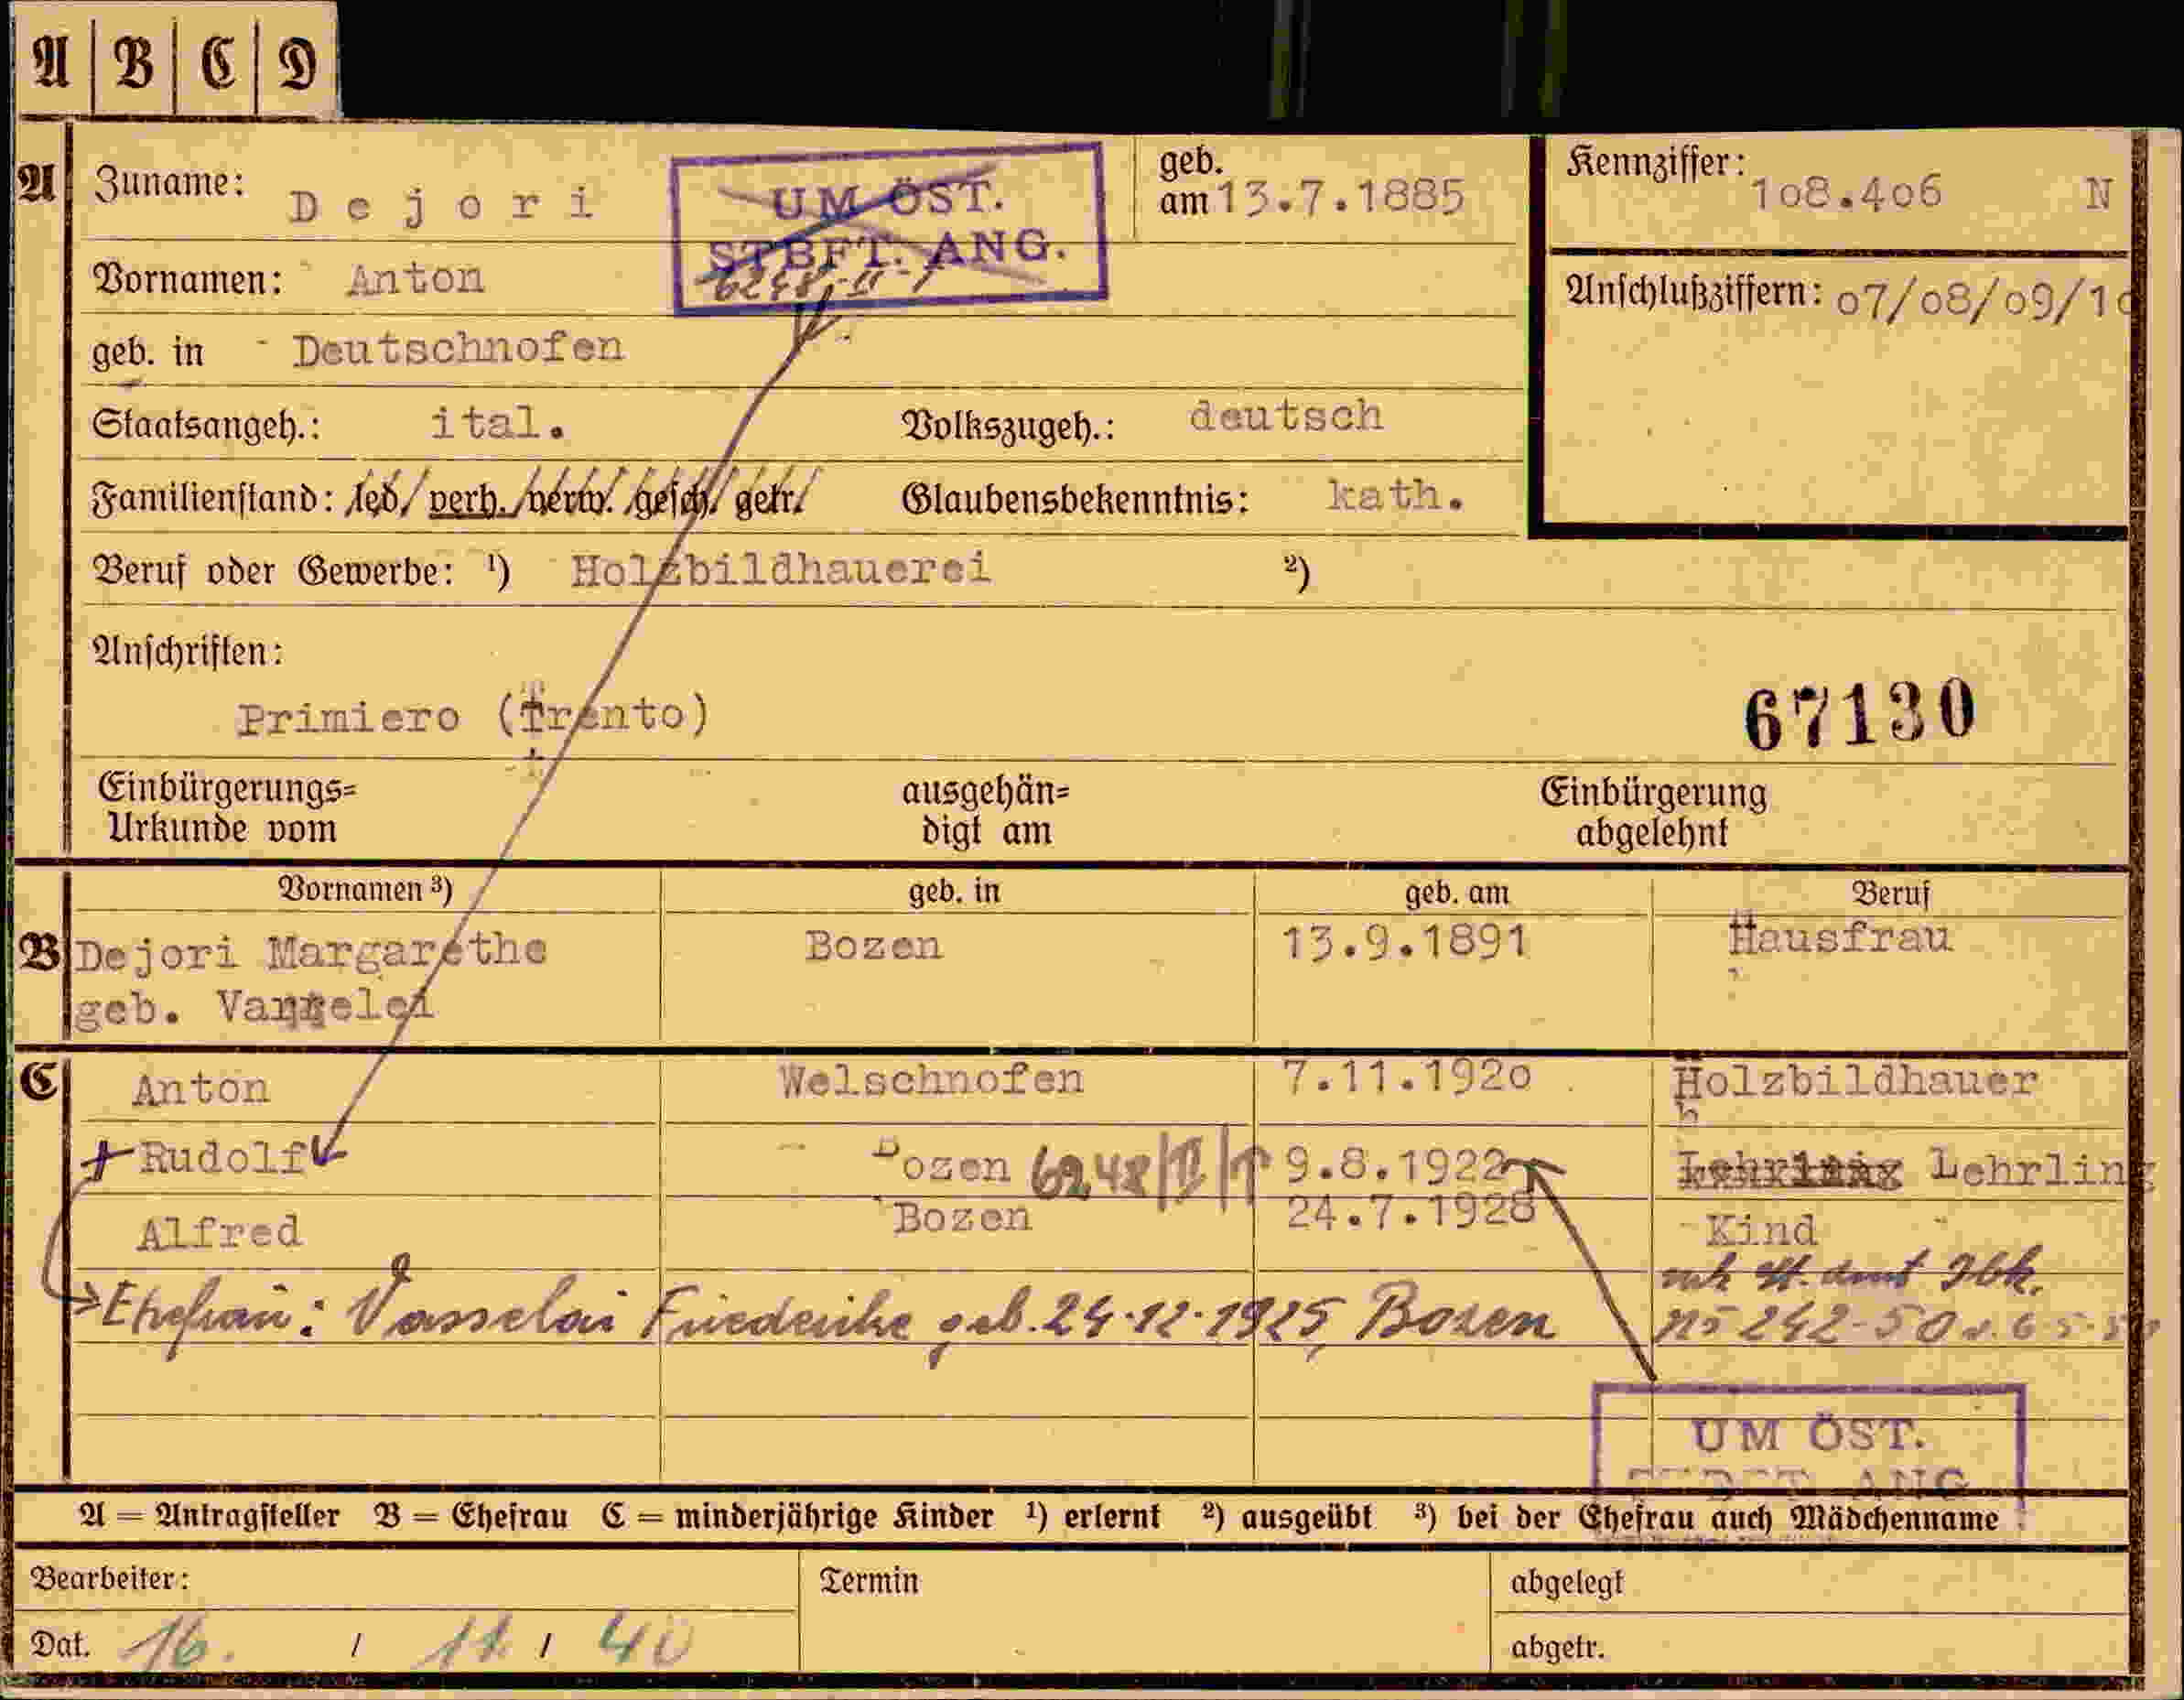 A | B | C | D
A
Zuname: Dejori
UM ÖST.
STBFT. ANG.
6248-II-1
geb.
am 13.7.1885
Kennziffer: 108.406 N
Vornamen: Anton
Anschlußziffern: 07/08/09/10
geb. in Deutschnofen
Staatsangeh.: ital. Volkszugeh.: deutsch
Familienstand: led/ verh./ verw./ gesch/ getr/ Glaubensbekenntnis: kath.
Beruf oder Gewerbe: ¹) Holzbildhauerei ²)
Anschriften:
Primiero (Trento)
67130
Einbürgerungs= ausgehän= Einbürgerung
Urkunde vom digt am abgelehnt
Vornamen ³) geb. in geb. am Beruf
B Dejori Margarethe Bozen 13.9.1891 Hausfrau
geb.
C Anton Welschnofen 7.11.1920 Holzbildhauer
Rudolf Bozen 6248/II/1 9.8.1922 Lehrling
Alfred Bozen 24.7.1928 Kind
Ehefrau: Vasselai Friederike geb. 24.12.1925, Bozen
242-50 v. 6.5.50
UM ÖST.
STBFT. ANG.
A = Antragsteller B = Ehefrau C = minderjährige Kinder ¹) erlernt ²) ausgeübt ³) bei der Ehefrau auch Mädchenname
Bearbeiter: Termin abgelegt
Dat. 16. / 11 / 40 abgetr.